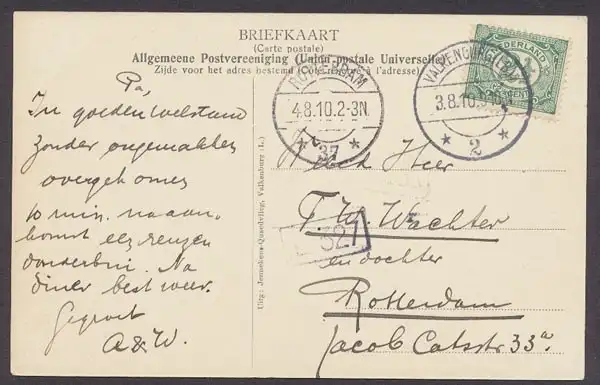 BRIEFKAART
(Carte postale)
Algemeene Postvereeniging (Union postale Universelle)
Zijde voor het adres bestemd (Côté réservé à l'adresse)
NEDERLAND
CENT
ROTTERDAM
4.8.10.2-3N
37
VALKENBURG (LB)
3.8.10.
2
Pa,
In goeden welstand
zonder ongemakken
overgekomen
10 min. na aan-
komst een regen
donderbui. Na
diner best weer.
Gegroet
A & W.
Uitg: Jennekens-Quaedvlieg, Valkenburg (L.)
Heer
F. W. Wachter
en dochter
Rotterdam
Jacob Catsstr 33a.
521